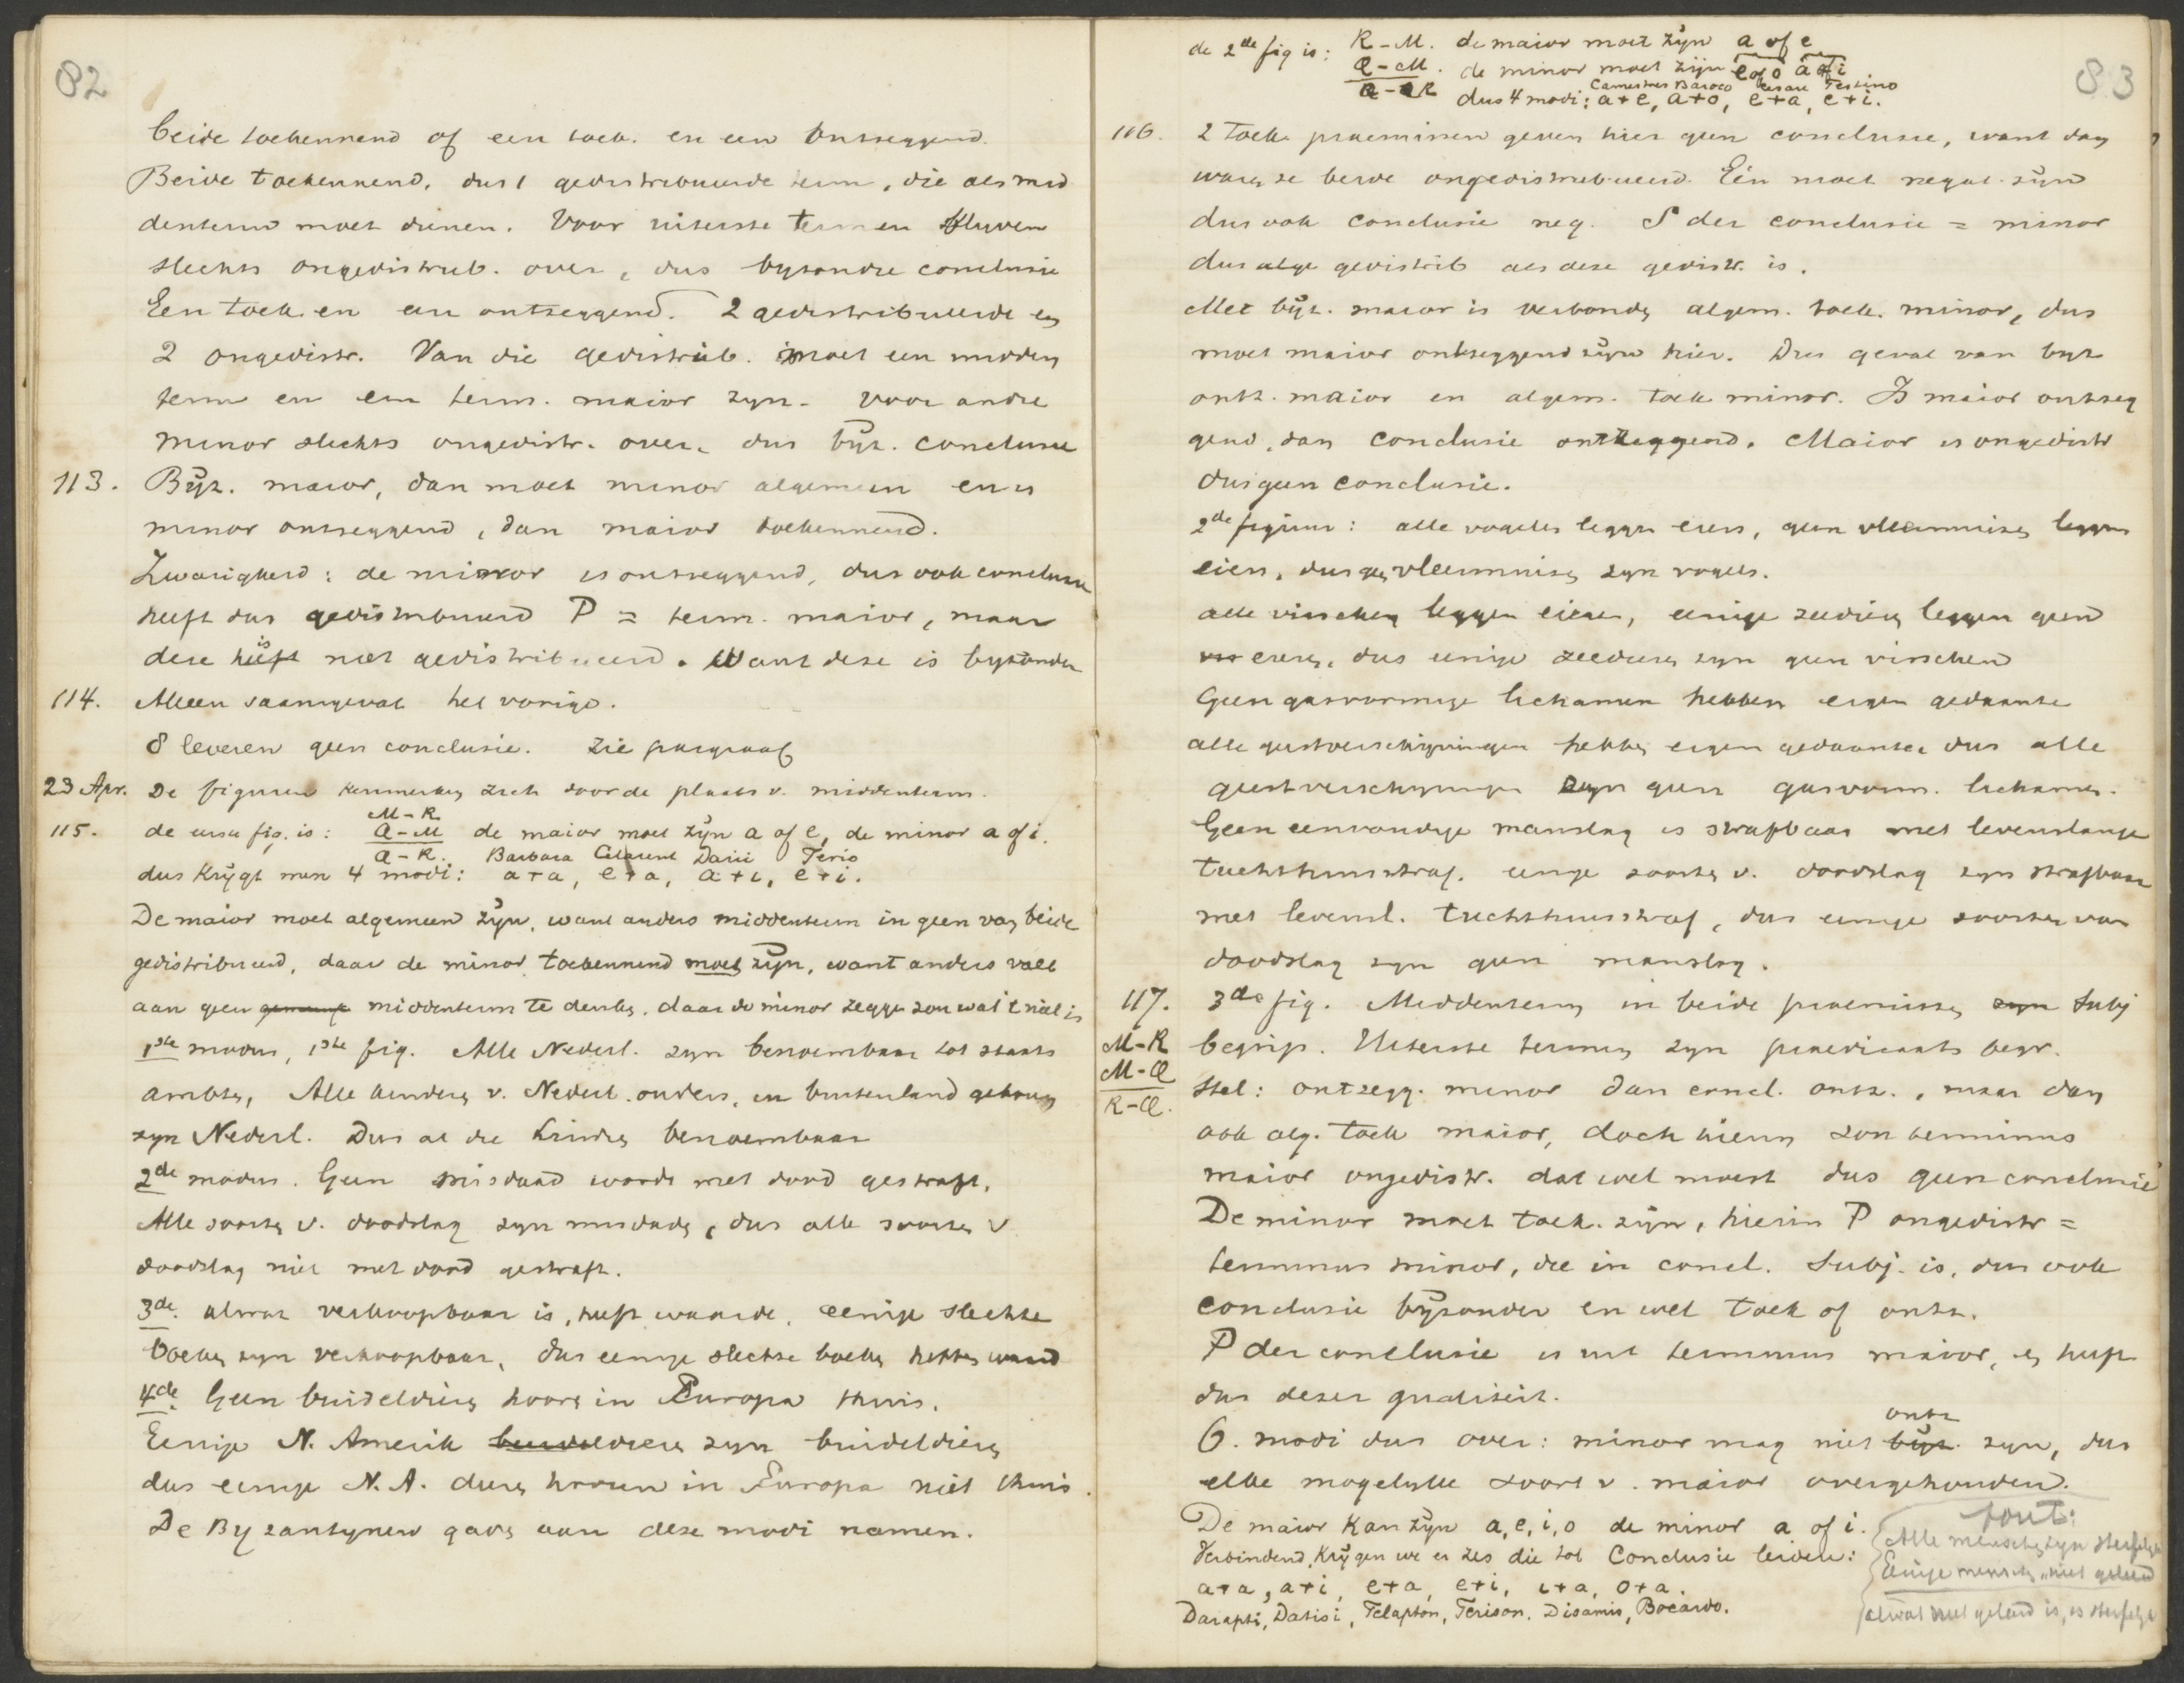 82
beide toekennend of een toek. en een ontzeggend.
Beide toekennend, dus 1 gedistribueerde term, die als mid
denterm moet dienen. Voor uiterste termen blyven
slechts ongedistrib. over, dus byzondre conclusie
Een toek. en een ontzeggend. 2 gedistribueerde en
2 ongedistr. Van die gedistrib. moet een midden
term en een term. maior zyn. voor andre
minor slechts ongedistr. over, dus byz. conclusie
113. Byz. maior, dan moet minor algemeen en is
minor ontzeggend, dan maior toekennend.
Zwarigheid: de minor is ontzeggend, dus ook conclusie
heeft dus gedistribueerd P = term. maior, maar
deze heeft is niet gedistribueerd. Want deze is byzonder
114. Alleen saamgevat het vorige.
8 leveren geen conclusie. Zie paragraaf
23 Apr. De figuren kenmerken zich door de plaats v. middenterm.
M-R
115. de eerste fig. is: Q-M de maior moet zyn a of e, de minor a of i.
Q-R. Barbara Celarent Darii Ferio
dus krygt men 4 modi: a+a, e+a, a+i, e+i.
De maior moet algemeen zyn, want anders middenterm in geen van beide
gedistribueerd, daar de minor toekennend moet zyn, want anders valt
aan geen middenterm te denken, daar de minor zeggen zou wat 't niet is
1ste modus, 1ste fig. Alle Nederl. zyn benoembaar tot staats
ambten, Alle kinderen v. Nederl. ouders, in buitenland geboren
zyn Nederl. Dus al die kindren benoembaar
2de modus. Geen misdaad wordt met dood gestraft.
Alle soorten v. doodslag zyn misdaden, dus alle soorten v
doodslag niet met dood gestraft.
3de. alwat verkoopbaar is, heeft waarde, eenige slechte
boeken zyn verkoopbaar, dus eenige slechte boeken hebben waard
4de. Geen buideldieren hooren in Europa thuis.
Eenige N. Amerik dieren zyn buideldieren
dus eenige N.A. dieren hooren in Europa niet thuis.
De Byzantynen gaven aan deze modi namen.
83
de 2de fig is: R-M. de maior moet zyn a of e
Q-M. de minor moet zijn e of o a of i
Q-R Camestres Baroco Cesare Festino
dus 4 modi: a+e, a+o, e+a, e+i.
116. 2 toek. praemissen geven hier geen conclusie, want dan
waren ze beide ongedistribueerd. Eén moet negat. zyn
dus ook conclusie neg. S der conclusie = minor
dus alge gedistrib als deze gedistr. is.
Met byz. maior is verbonden algem. toek. minor, dus
moet maior ontzeggend zyn hier. Dus geval van byz
ontz. maior en algem. toek minor. Is maior ontzeg
gend, dan conclusie ontzeggend. Maior is ongedistr
dus geen conclusie.
2de figuur: alle vogels leggen eiers, geen vleermuizen leggen
eiers, dus geen vleermuizen zyn vogels.
alle visschen leggen eieren, eenige zeedieren leggen geen
eieren, dus eenige zeedieren zyn geen visschen
Geen gasvormige lichamen hebben eigen gedaante
alle geestverschijningen hebben eigen gedaante, dus alle
geestverschyningen zyn geen gasvorm. lichamen.
Geen eenvoudige manslag is strafbaar met levenslange
tuchthuisstraf. eenige soorten v. doodslag zyn strafbaar
met levensl. tuchthuisstraf, dus eenige soorten van
doodslag zyn geen manslag.
117. 3de fig. Middenterm in beide praemissen zyn Subj
M-R begrip. Uiterste termen zyn praedicaats begr.
M-Q Stel: ontzegg. minor dan concl. ontz., maar dan
R-Q. ook alg. toek maior, doch hierin zou terminus
maior ongedistr. dat wel moest dus geen conclusie
De minor moet toek. zyn, hierin P ongedistr =
terminus minor, die in concl. Subj. is, dus ook
conclusie byzonder en wel toek of ontz.
P der conclusie is uit terminus maior, en heeft
dus dezer qualiteit.
ontz
6. modi dus over: minor mag niet byz. zyn, dus
elke mogelyke soort v. maior overgehouden.
De maior kan zyn a, e, i, o de minor a of i.
Verbindend, krygen we er zes die tot Conclusie leiden:
a+a, a+i, e+a, e+i, i+a, o+a.
Darapti, Datisi, Felapton, Ferison, Disamis, Bocardo.
fout:
Alle menschen zyn sterfelyk
Eenige menschen " niet geleerd
alwat niet geleerd is, is sterfelyk